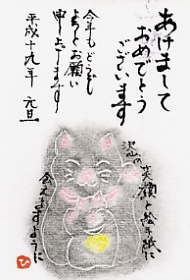 あけまして
おめでとう
ございます
今年もどうぞ
よろしくお願い
申し上げます
平成十九年 元旦
沢山の笑顔と絵手紙に
会えますように
ひ